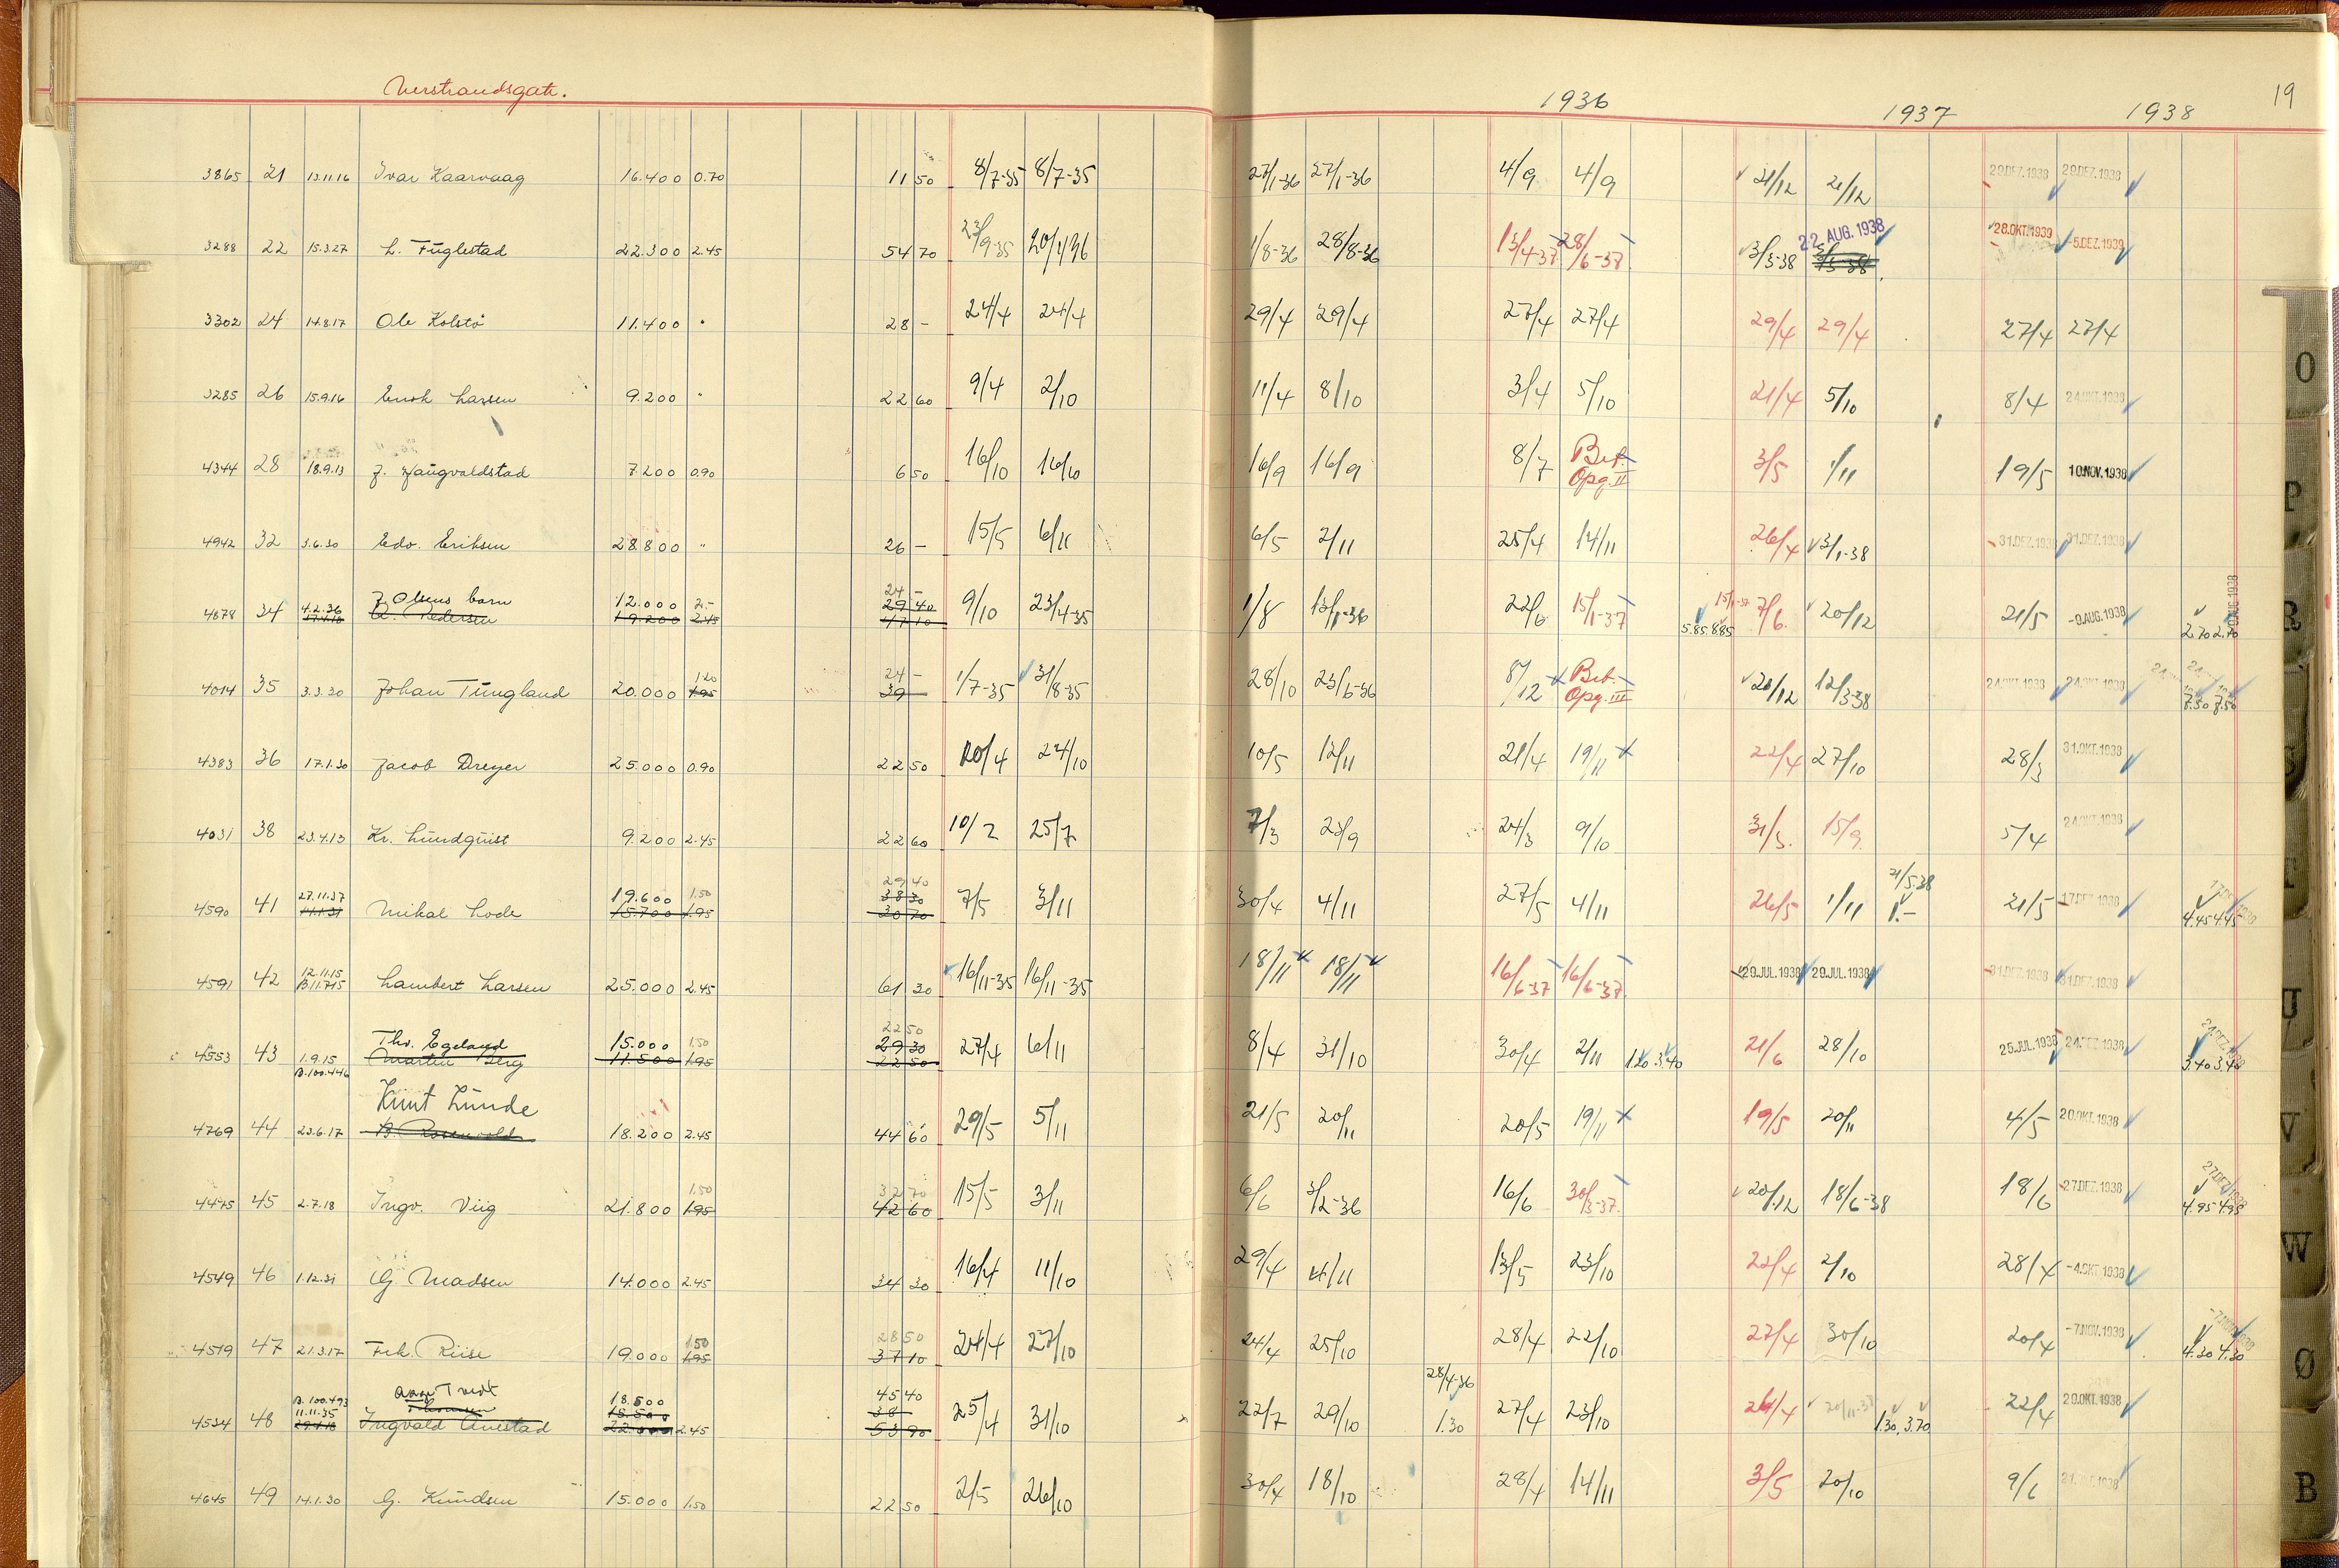 Verstrandsgate.
1936 1937 1938 19
3865 21 13.11.16 Ivar Kaarvaag 16.400 0.70 11 50 8/7-35 8/7-35 27/1-36 27/1-36 4/9 4/9 21/12 21/12 29.DEZ.1938 29.DEZ.1938
3288 22 15.3.27 L. Fuglestad 22.300 2.45 54 70 23/9-35 20/1/36 1/8-36 28/8-36 13/4-37 28/6-37 3/3-38 22. AUG. 1938 28.OKT.1939 -5.DEZ.1939
3302 24 14.8.17 Ole Kolstö 11.400 " 28 - 24/4 24/4 29/4 29/4 27/4 27/4 29/4 29/4 27/4 27/4
3285 26 15.9.16 Enok Larsen 9.200 " 22 60 9/4 2/10 11/4 8/10 3/4 5/10 21/4 5/10 8/4 24.OKT.1938
4344 28 18.9.13 J. Jaugvaldstad 7.200 0.90 6 50 16/10 16/10 16/9 16/9 8/7 Bet. Opg. II 3/5 1/11 19/5 10.NOV.1938
4942 32 3.6.30 Edv. Eriksen 28.800 " 26 - 15/5 6/11 6/5 2/11 25/4 14/11 26/4 3/1-38 31.DEZ.1938 31.DEZ.1938
24 -
4678 34 4.2.36 J. Olsens barn 12.000 2.- 29 40 9/10 23/4-35 1/8 13/1-36 22/6 15/1-37 5.85 8.85 15/1-37 7/6 20/12 21/5 -9.AUG.1938 2.70 2.70 -9.AUG.1938
Pedersen 19.200 2.45 47 10
1.20 24 -
4014 35 3.3.30 Johan Tungland 20.000 1.95 39 1/7-35 31/8-35 28/10 23/6-36 8/12 Bet. Opg. III 21/12 12/3-38 24.OKT.1938 24.OKT.1938 7.50 7.50
4383 36 17.1.30 Jacob Dreyer 25.000 0.90 22 50 20/4 24/10 10/5 12/11 21/4 19/11 22/4 27/10 28/3 31.OKT.1938
4031 38 23.4.13 Kr. Lundquist 9.200 2.45 22 60 10/2 25/7 7/3 23/9 24/3 9/10 31/3. 15/9. 5/4 24.OKT.1938
29 40
27.11.37 19.600 1.50 38 30 21/5-38
4590 41 Mikal Lode 15.700 1.95 30 70 7/5 3/11 30/4 4/11 27/5 4/11 26/5 1/11 1.- 21/5 17.DEZ.1938 4.45 4.45
4591 42 12.11.15 B.11.715 Lambert Larsen 25.000 2.45 61 30 16/11-35 16/11-35 18/11 18/11 16/6-37 16/6-37. 29.JUL.1938 29.JUL.1938 31.DEZ.1938 31.DEZ.1938
22 50
Thv. Egeland 15.000 1.50 29 30
4553 43 1.9.15 Martin Berg 11.500 1.95 22 50 27/4 6/11 8/4 31/10 30/4 2/11 1.20 3.40 21/6 28/10 25.JUL.1938 24.DEZ.1938 3.40 3.40
B.100.446
Knut Lunde
4769 44 23.6.17 B. Rosenvold 18.200 2.45 44 60 29/5 5/11 21/5 20/11 20/5 19/11 19/5 20/11 4/5 20.OKT.1938
1.50 32 70
4475 45 2.7.18 Ingv. Viig 21.800 1.95 42 60 15/5 3/11 6/6 3/12-36 16/6 30/3-37. 20/12 18/6-38 18/6 27.DEZ.1938 4.95 4.95
4549 46 1.12.31 G. Madsen 14.000 2.45 34 30 16/4 11/10 29/4 4/11 13/5 23/10 22/4 2/10 28/4 -4.OKT.1938
1.50 28 50
4519 47 21.3.17 Frk. Riise 19.000 1.95 37 10 24/4 27/10 24/4 25/10 28/4 22/10 27/4 30/10 20/4 -7.NOV.1938 4.30 4.30
B.100.493 Tvedt 18.500 45 40 28/4-36
11.11.35 Thomsen 15.500 38 -
4534 48 29.4.18 Ingvald Anestad 22.000 2.45 53 90 25/4 31/10 22/7 29/10 1.30 27/4 23/10 26/4 20/11-37 1.30, 3.70 22/4 20.OKT.1938
4645 49 14.1.30 G. Knudsen 15.000 1.50 22 50 2/5 26/10 30/4 18/10 28/4 14/11 3/5 20/10 9/6
O
P
R
S
T
U
V
W
Ø
B